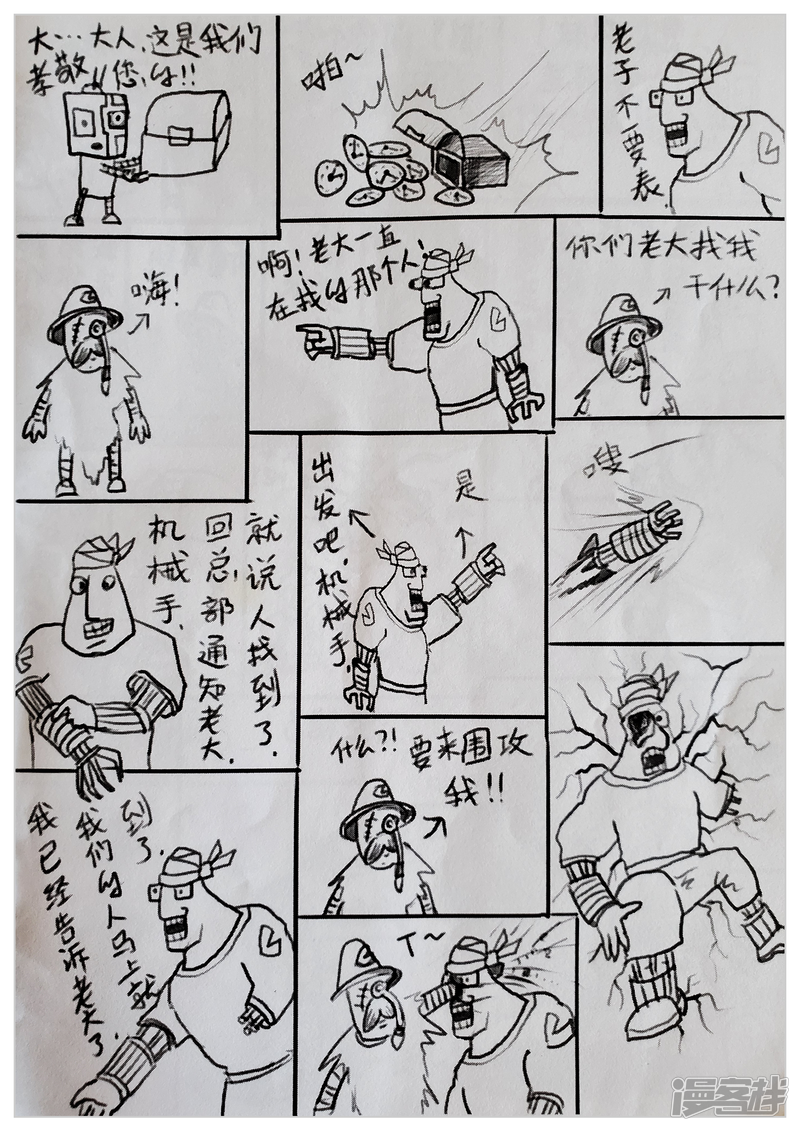 大…大人,这是我们
孝敬您的!!
啪~
老子不要表.
嗨!
啊!老大一直
在找的那个人!
你们老大找我
干什么?
就说人找到了.
回总部通知老大.
机械手.
是
出发吧,机械手.
嗖一
到了.
我们的人马上就
我已经告诉老大了.
什么?!要来围攻
我!!
T~
漫客栈